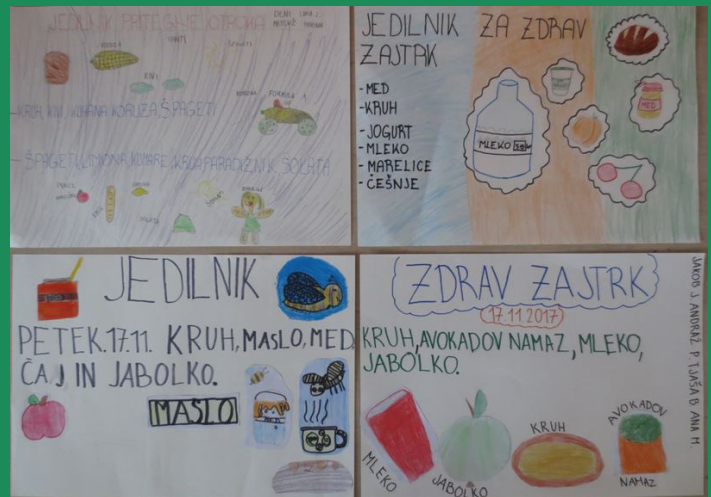 JEDILNIK
KIVI
-KRUH, KIVI, KUHANA KORUZA, ŠPAGETI
-ŠPAGETI, LIMONA, KUMARE, KRUH, PARADIŽNIK, SOLATA
JEDILNIK ZA ZDRAV
ZAJTRK
-MED
-KRUH
-JOGURT
-MLEKO
-MARELICE
-ČEŠNJE
MLEKO
MED
JEDILNIK
PETEK.17.11. KRUH, MASLO, MED,
ČAJ IN JABOLKO.
MASLO
ZDRAV ZAJTRK
17.11.2017
KRUH, AVOKADOV NAMAZ, MLEKO,
JABOLKO.
MLEKO
JABOLKO
KRUH
AVOKADOV
NAMAZ
JAKOB J. ANDRAŽ P. TJAŠA B ANA M.